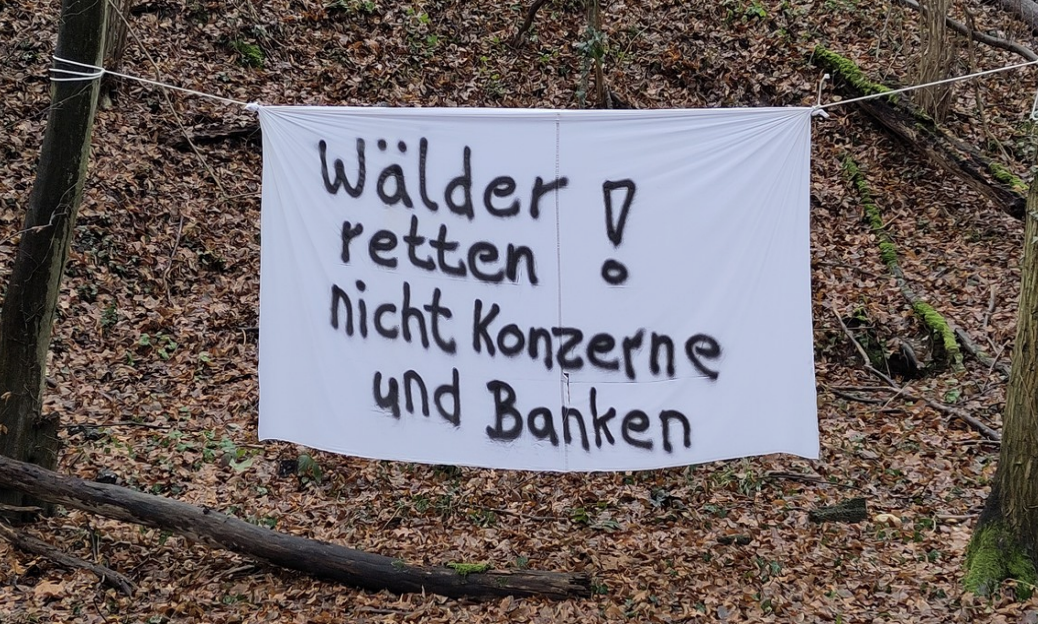 Wälder !
retten
nicht Konzerne
und Banken